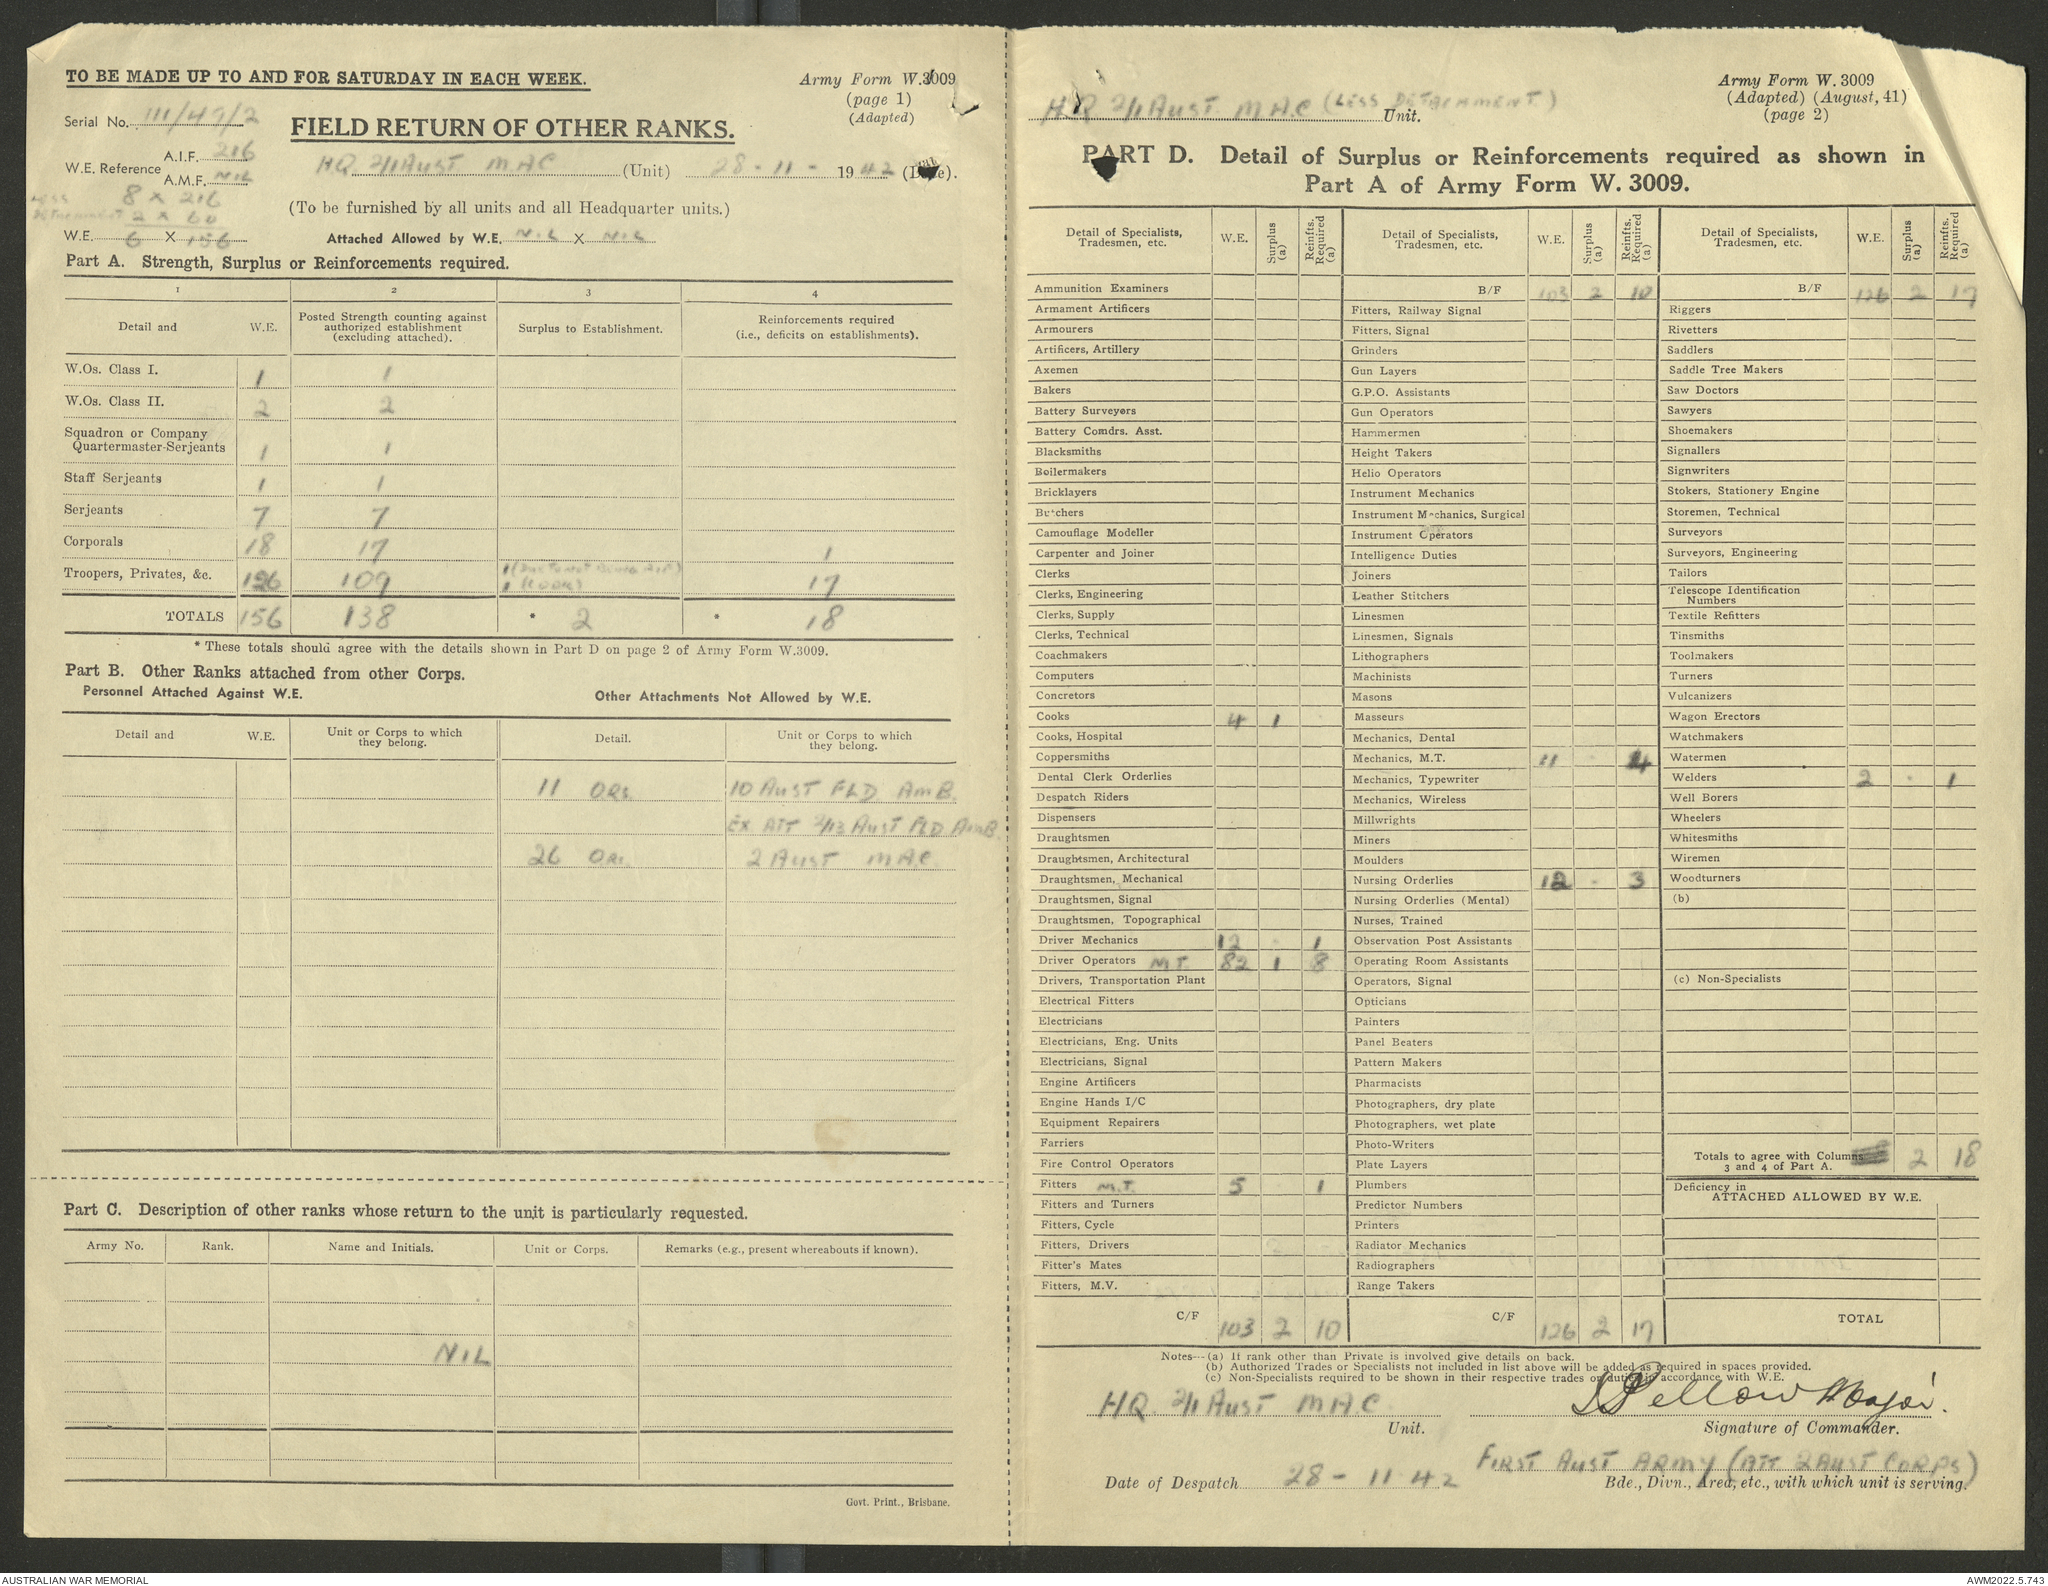 TO BE MADE UP TO AND FOR SATURDAY IN EACH WEEK.
Army Form W.3009
(page 1)
(Adapted)
Serial No. 111/49/2
FIELD RETURN OF OTHER RANKS.
W.E. Reference A.I.F. 216
A.M.F. NIL
HQ 2/1 AUST M.A.C (Unit) 28-11-1942 (Date).
8 x 216
LESS DETACHMENT 2 x 60
(To be furnished by all units and all Headquarter units.)
W.E. 6 X 156 Attached Allowed by W.E. NIL X NIL
Part A. Strength, Surplus or Reinforcements required.
1 2 3 4
Detail and W.E. Posted Strength counting against authorized establishment (excluding attached). Surplus to Establishment. Reinforcements required (i.e., deficits on establishments).
W.Os. Class I. 1 1
W.Os. Class II. 2 2
Squadron or Company Quartermaster-Serjeants 1 1
Staff Serjeants 1 1
Serjeants 7 7
Corporals 18 17 1
Troopers, Privates, &c. 126 109 1 1 (COOK) 17
TOTALS 156 138 * 2 * 18
* These totals should agree with the details shown in Part D on page 2 of Army Form W.3009.
Part B. Other Ranks attached from other Corps.
Personnel Attached Against W.E. Other Attachments Not Allowed by W.E.
Detail and W.E. Unit or Corps to which they belong. Detail. Unit or Corps to which they belong.
11 ORs. 10 AUST FLD AMB.
EX ATT 2/13 AUST FLD AMB.
26 ORs. 2 AUST M.A.C.
Part C. Description of other ranks whose return to the unit is particularly requested.
Army No. Rank. Name and Initials. Unit or Corps. Remarks (e.g., present whereabouts if known).
NIL
Govt. Print., Brisbane.
HQ 2/1 AUST M.A.C (LESS DETACHMENT) Unit.
Army Form W. 3009
(Adapted) (August, 41)
(page 2)
PART D. Detail of Surplus or Reinforcements required as shown in
Part A of Army Form W. 3009.
Detail of Specialists, Tradesmen, etc. W.E. Surplus (a) Reinfts. Required (a)
Ammunition Examiners
Armament Artificers
Armourers
Artificers, Artillery
Axemen
Bakers
Battery Surveyors
Battery Comdrs. Asst.
Blacksmiths
Boilermakers
Bricklayers
Butchers
Camouflage Modeller
Carpenter and Joiner
Clerks
Clerks, Engineering
Clerks, Supply
Clerks, Technical
Coachmakers
Computers
Concretors
Cooks 4 1
Cooks, Hospital
Coppersmiths
Dental Clerk Orderlies
Despatch Riders
Dispensers
Draughtsmen
Draughtsmen, Architectural
Draughtsmen, Mechanical
Draughtsmen, Signal
Draughtsmen, Topographical
Driver Mechanics 12 - 1
Driver Operators M.T. 82 1 8
Drivers, Transportation Plant
Electrical Fitters
Electricians
Electricians, Eng. Units
Electricians, Signal
Engine Artificers
Engine Hands I/C
Equipment Repairers
Farriers
Fire Control Operators
Fitters M.T. 5 1
Fitters and Turners
Fitters, Cycle
Fitters, Drivers
Fitter's Mates
Fitters, M.V.
C/F 103 2 10
Detail of Specialists, Tradesmen, etc. W.E. Surplus (a) Reinfts. Required (a)
B/F 103 2 10
Fitters, Railway Signal
Fitters, Signal
Grinders
Gun Layers
G.P.O. Assistants
Gun Operators
Hammermen
Height Takers
Helio Operators
Instrument Mechanics
Instrument Mechanics, Surgical
Instrument Operators
Intelligence Duties
Joiners
Leather Stitchers
Linesmen
Linesmen, Signals
Lithographers
Machinists
Masons
Masseurs
Mechanics, Dental
Mechanics, M.T. 11 - 4
Mechanics, Typewriter
Mechanics, Wireless
Millwrights
Miners
Moulders
Nursing Orderlies 12 - 3
Nursing Orderlies (Mental)
Nurses, Trained
Observation Post Assistants
Operating Room Assistants
Operators, Signal
Opticians
Painters
Panel Beaters
Pattern Makers
Pharmacists
Photographers, dry plate
Photographers, wet plate
Photo-Writers
Plate Layers
Plumbers
Predictor Numbers
Printers
Radiator Mechanics
Radiographers
Range Takers
C/F 126 2 17
Detail of Specialists, Tradesmen, etc. W.E. Surplus (a) Reinfts. Required (a)
B/F 126 2 17
Riggers
Rivetters
Saddlers
Saddle Tree Makers
Saw Doctors
Sawyers
Shoemakers
Signallers
Signwriters
Stokers, Stationery Engine
Storemen, Technical
Surveyors
Surveyors, Engineering
Tailors
Telescope Identification Numbers
Textile Refitters
Tinsmiths
Toolmakers
Turners
Vulcanizers
Wagon Erectors
Watchmakers
Watermen
Welders 2 - 1
Well Borers
Wheelers
Whitesmiths
Wiremen
Woodturners
(b)
(c) Non-Specialists
Totals to agree with Columns 3 and 4 of Part A. 2 18
Deficiency in
ATTACHED ALLOWED BY W.E.
TOTAL
Notes—(a) If rank other than Private is involved give details on back.
(b) Authorized Trades or Specialists not included in list above will be added as required in spaces provided.
(c) Non-Specialists required to be shown in their respective trades or duties in accordance with W.E.
HQ. 2/1 AUST M.A.C. Unit.
Pellow Major.
Signature of Commander.
FIRST AUST ARMY (ATT 2 AUST CORPS)
Date of Despatch 28-11-42 Bde., Divn., Area, etc., with which unit is serving.
AUSTRALIAN WAR MEMORIAL
AWM2022.5.743